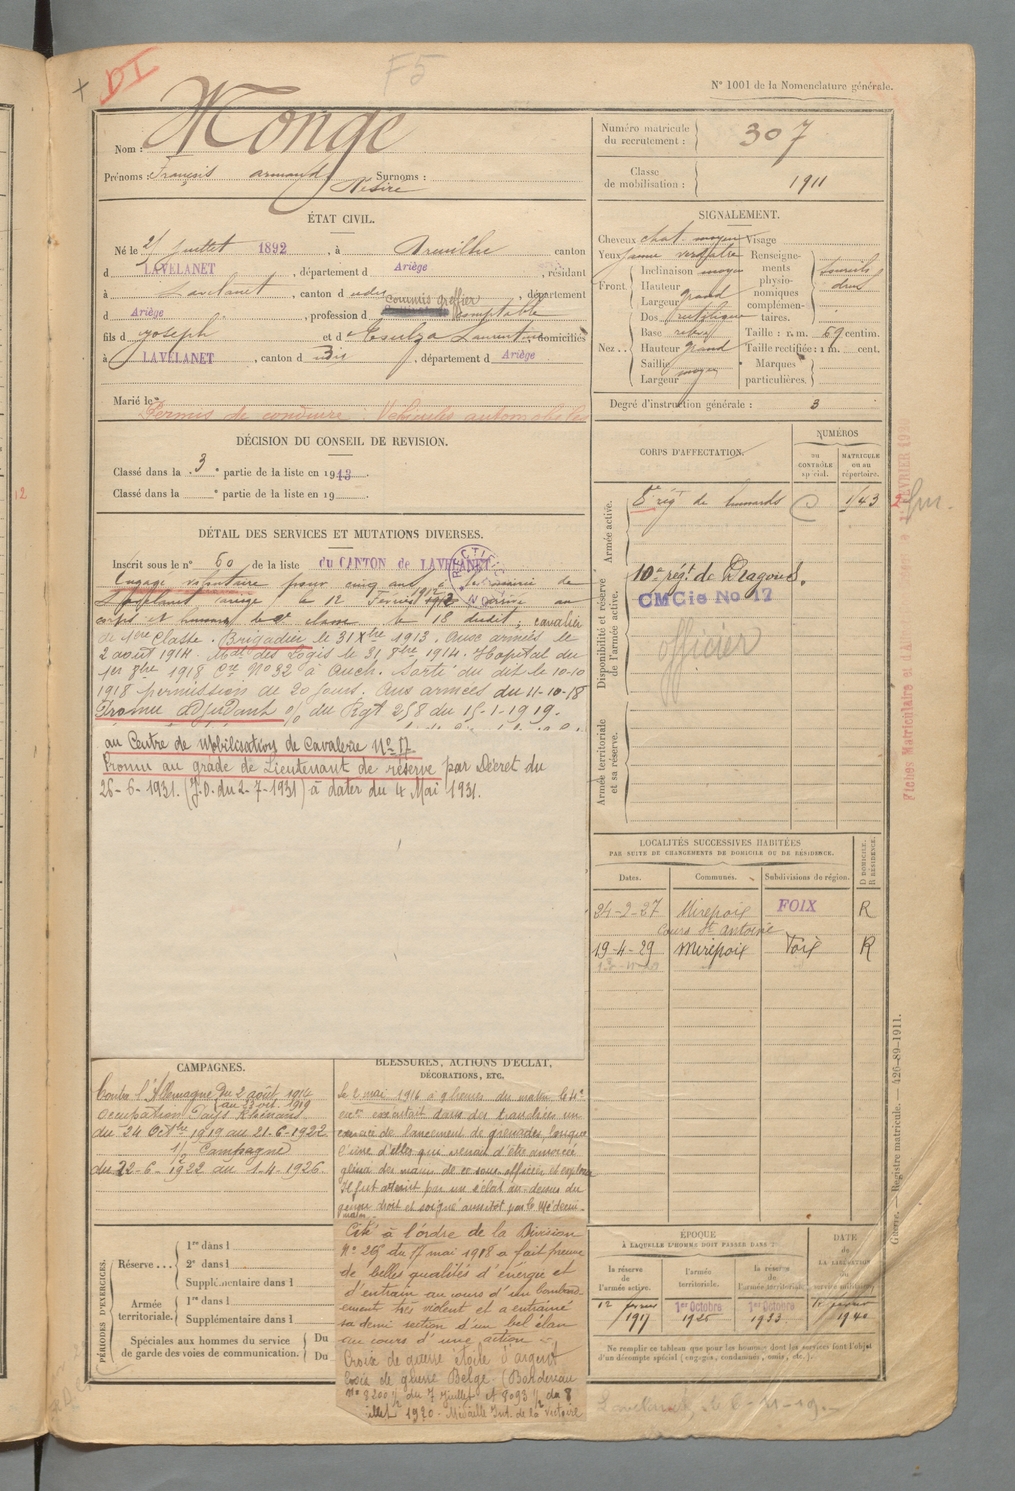 DI
F5
N° 1001 de la Nomenclature générale.
Nom : Monge
Prénoms : François armand Désiré Surnoms :
ÉTAT CIVIL.
Né le 21 juillet 1892, à canton
d LAVELANET, département d Ariège, résidant
à Lavelanet, canton d udit, département
commis greffier
d Ariège, profession d comptable
fils d Joseph et d domiciliés
à LAVELANET, canton d dudit, département d Ariège
Marié le
Permis de conduire Véhicules automobiles
DÉCISION DU CONSEIL DE REVISION.
Classé dans la 3e partie de la liste en 1913.
Classé dans la e partie de la liste en 19
DÉTAIL DES SERVICES ET MUTATIONS DIVERSES.
Inscrit sous le n° 60 de la liste du CANTON de LAVELANET
Engagé volontaire pour cinq ans à la mairie de
ariège le 12 Février 1912 arrivé au
corps et le 18 dudit; cavalier
de 1ère Classe. Brigadier le 31 Xbre 1913. Aux armées le
2 août 1914. Mal des Logis le 31 8bre 1914. Hopital du
1er 8bre 1918 Cre N°32 à Auch. Sorti du dit le 10-10
1918 permission de 20 jours. Aux armées du 11-10-18
Promu adjudant % du Rgt 258 du 15-1-1919-
au Centre de Mobilisation de Cavalerie N° 17.
Promu au grade de Lieutenant de réserve par Décret du
26-6-1931. (J.O. du 2-7-1931) à dater du 4 Mai 1931.
CAMPAGNES.
Contre l'Allemagne du 2 août 1914
au 23 oct. 1919
Occupation Pays Rhénans
du 24 Octbre 1919 au 21-6-1922
1/2 Campagne
du 22-6-1922 au 1-4-1926.
BLESSURES, ACTIONS D'ÉCLAT,
DÉCORATIONS, ETC.
Le 2 mai 1916 à 9 heures du matin le 4e
exécutait dans des tranchées un
exercice de lancement de grenades, lorsque
l'une d'elles qui venait d'être amorcée
glissa des mains de ce sous-officier et explosa
Il fut atteint par un éclat au-dessus du
genou droit et soigné aussitôt par le Médecin-
major.
Cité à l'ordre de la Division
N° 269 du 17 mai 1918 a fait preuve
de belles qualités d'énergie et
d'entrain au cours d'un bombard
ement très violent et a entraîné
sa demi section d'un bel élan
au cours d'une action
Croix de guerre étoile d'argent
Croix de guerre Belge (Bordereau
N° 8200 1/2 du 7 juillet et 8093 1/2 du 8
illet 1920 - Médaille Int. de la Victoire
PÉRIODES D'EXERCICES.
Réserve... 1re dans l
2e dans l
Supplémentaire dans l
Armée territoriale. 1re dans l
Supplémentaire dans l
Spéciales aux hommes du service
de garde des voies de communication.
Du
Du
Numéro matricule du recrutement : 307
Classe de mobilisation : 1911
SIGNALEMENT.
Cheveux chat. moyen Visage
Yeux jaune verdâtre
Front. Inclinaison moyen
Hauteur
Largeur grand
Nez.. Dos rectiligne
Base relevé
Hauteur grand
Saillie
Largeur moyen
Renseignements physionomiques complémentaires. Sourcils drus
Taille : 1 m. 69 centim.
Taille rectifiée : 1 m. cent.
Marques particulières.
Degré d'instruction générale : 3
CORPS D'AFFECTATION.
NUMÉROS
DU CONTRÔLE spécial.
MATRICULE ou au répertoire.
Armée active.
5e régt de hussards 1143
Disponibilité et réserve de l'armée active.
10e régt de Dragons.
CMCie No 17
officier
Armée territoriale et sa réserve.
Fiches Matriculaire
LOCALITÉS SUCCESSIVES HABITÉES
PAR SUITE DE CHANGEMENTS DE DOMICILE OU DE RÉSIDENCE.
Dates. Communes. Subdivisions de région. D DOMICILE. R RÉSIDENCE.
24-2-27 Mirepoix FOIX R
Cours St Antoine
19-4-29 Mirepoix Foix R
ÉPOQUE
À LAQUELLE L'HOMME DOIT PASSER DANS :
la réserve de l'armée active.
l'armée territoriale.
la réserve de l'armée territoriale.
DATE de LA LIBÉRATION du service militaire.
12 février 1917
1er Octobre 1925
1er Octobre 1923
12 février 1940
Ne remplir ce tableau que pour les hommes dont les services font l'objet
d'un décompte spécial (engagés, condamnés, omis, etc.).
Guerre. — Registre matricule. — 426-89-1911.